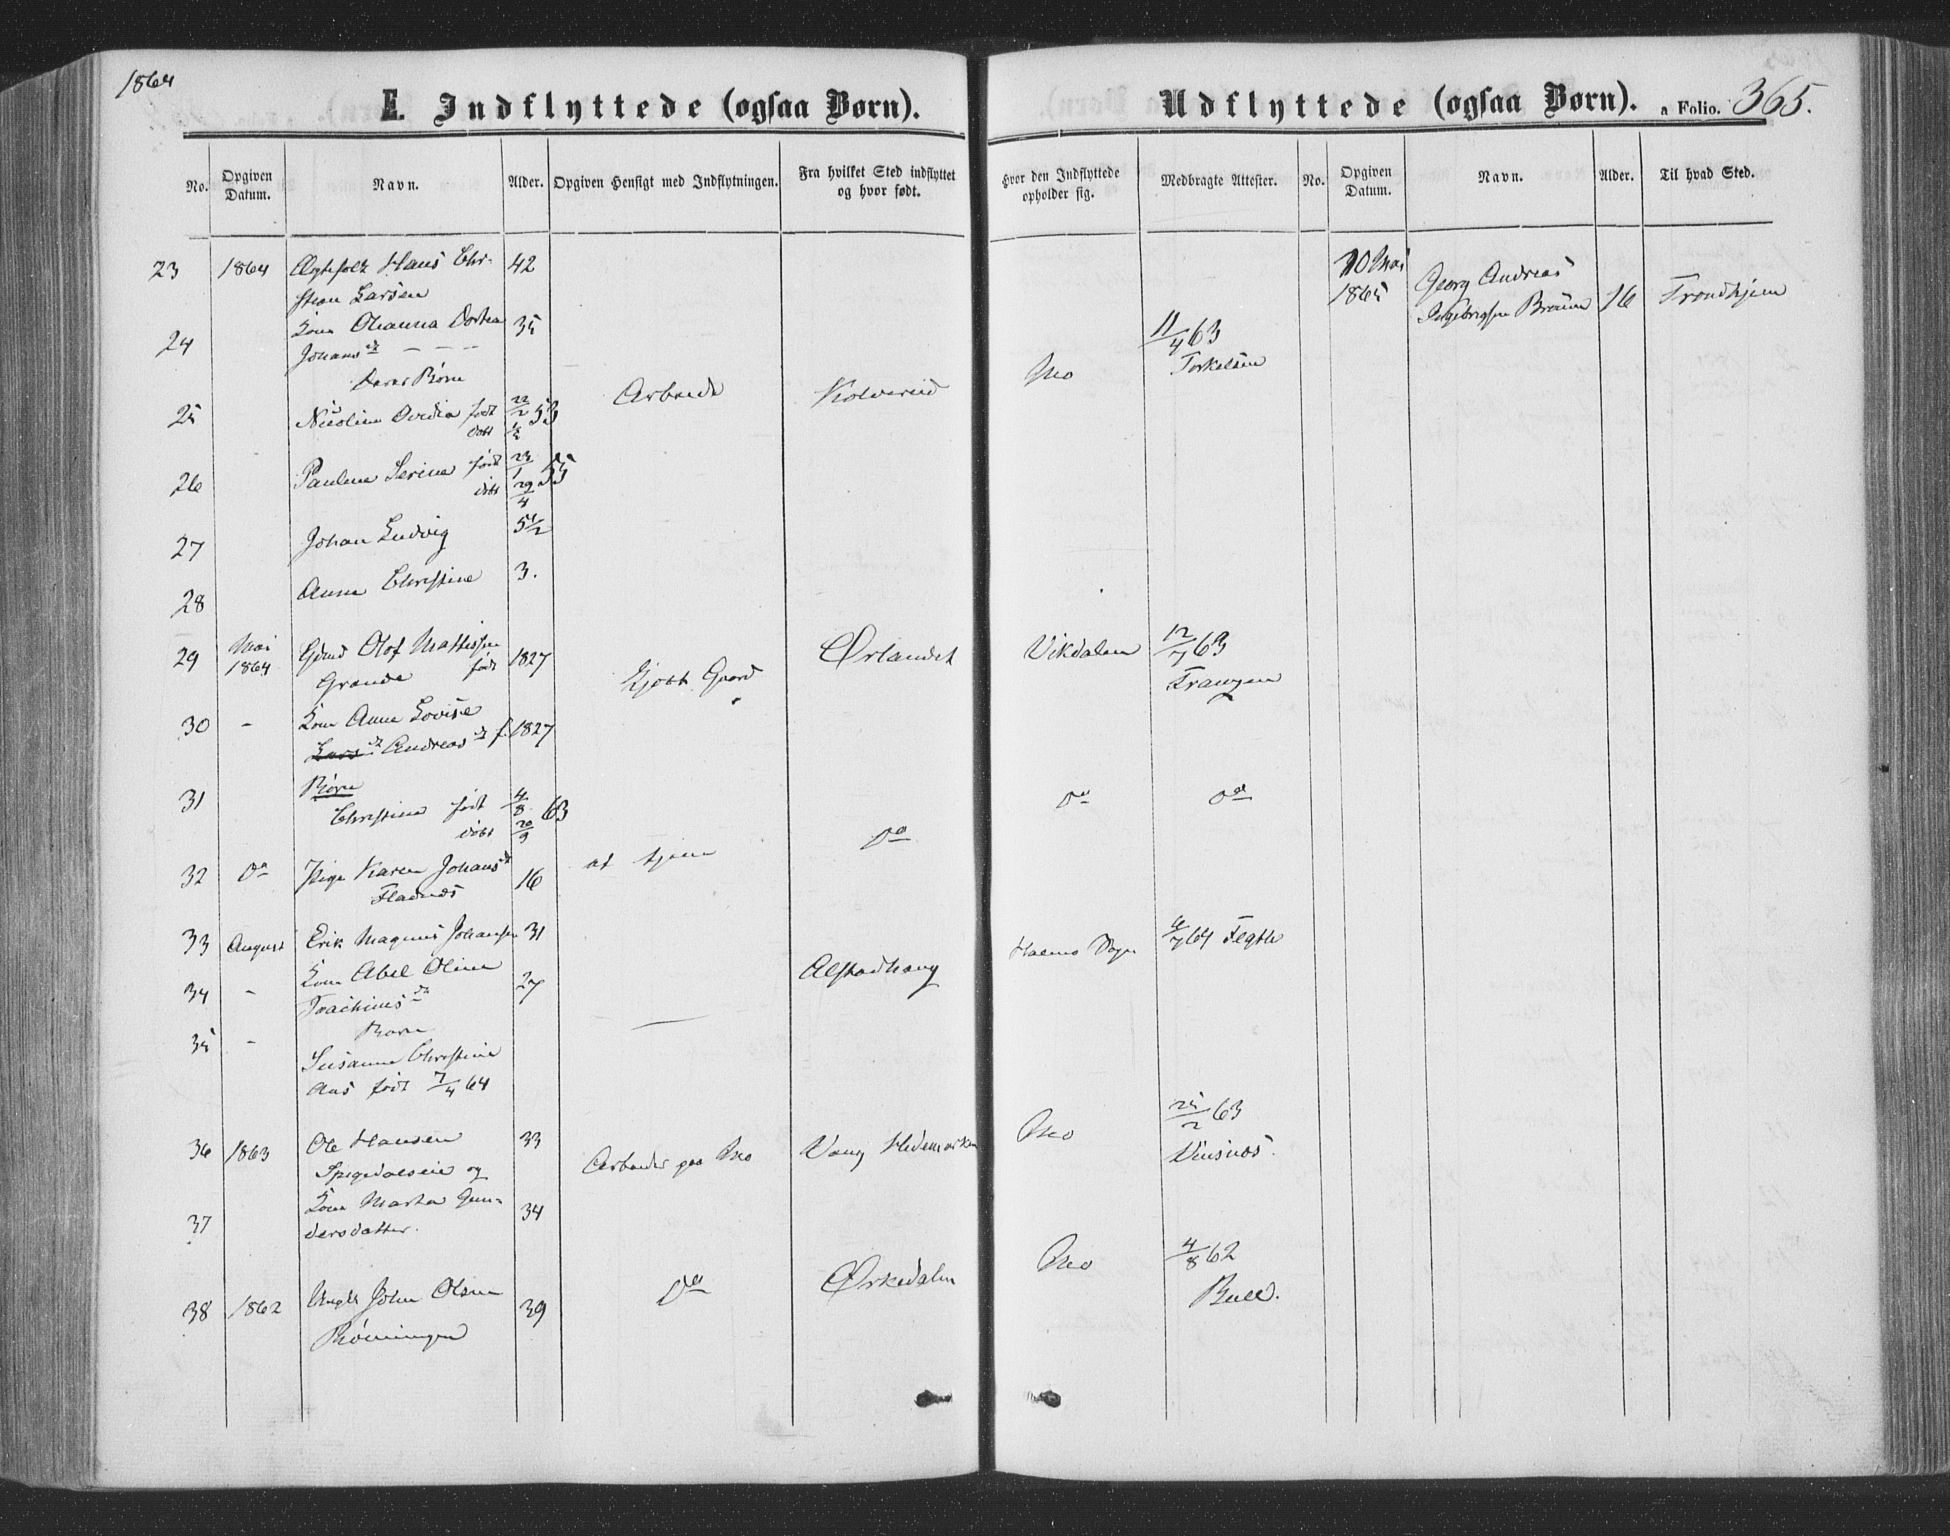 1864
E. Indflyttede (ogsaa Børn).
No.
Opgiven Datum.
Navn.
Alder.
Opgiven Hensigt med Indflytningen.
Fra hvilket Sted indflyttet og hvor født.
23 1864 Ægtefolk Hans Chr- 42
stian Larsen
24 Kone Ohanna Dortea 35
Johansdr - - -
Deres Børn
Arbeide Kolvereid
25 Nicoline Ovidia født 22/2 53
døbt
26 Pauline Serine født 23/1 55
døbt 29/4
27 Johan Ludvig 5 1/2
28 Anna Christine 3.
29 Mai 1864 Gbmd Olof Mathissen
Grande født 1827 Kjøbt Gaard Ørlandet
30 - Kone Anne Lovise
Larsdr Andreasdr f. 1827
31 Børn
Christine født 4/8 63
døbt 20/9
Do
32 Do Pige Karen Johansdr 16 at tjene
Fladnæs
33 August Erik Magnus Johansen 31
34 - Kone Abel Oline 27 Alstadhaug
Joachimsdr
35 - Barn
Susanna Christine
Aas født 7/4 64
36 1863 Ole Hansen 33 Arbeider paa Næo Vang Hedemarken
Spigedalseie og
37 Kone Marta Gun- 34
dersdatter.
38 1862 Ungk John Olsen 39 Do Ørkedalen
Rønningen
Udflyttede (ogsaa Børn).
a Folio. 365.
Hvor den Indflyttede opholder sig.
Medbragte Attester.
No.
Opgiven Datum.
Navn.
Alder.
Til hvad Sted.
10 Mai 1865 Georg Andreas
Ingebrigtsen Bruun 16 Trondhjem
11/4 63
Torkelsen
Vikdalen 12/7 63
Franzen
Do Do
6/7 64
25/2 63
Vinsnæs.
4/8 62
Bull.